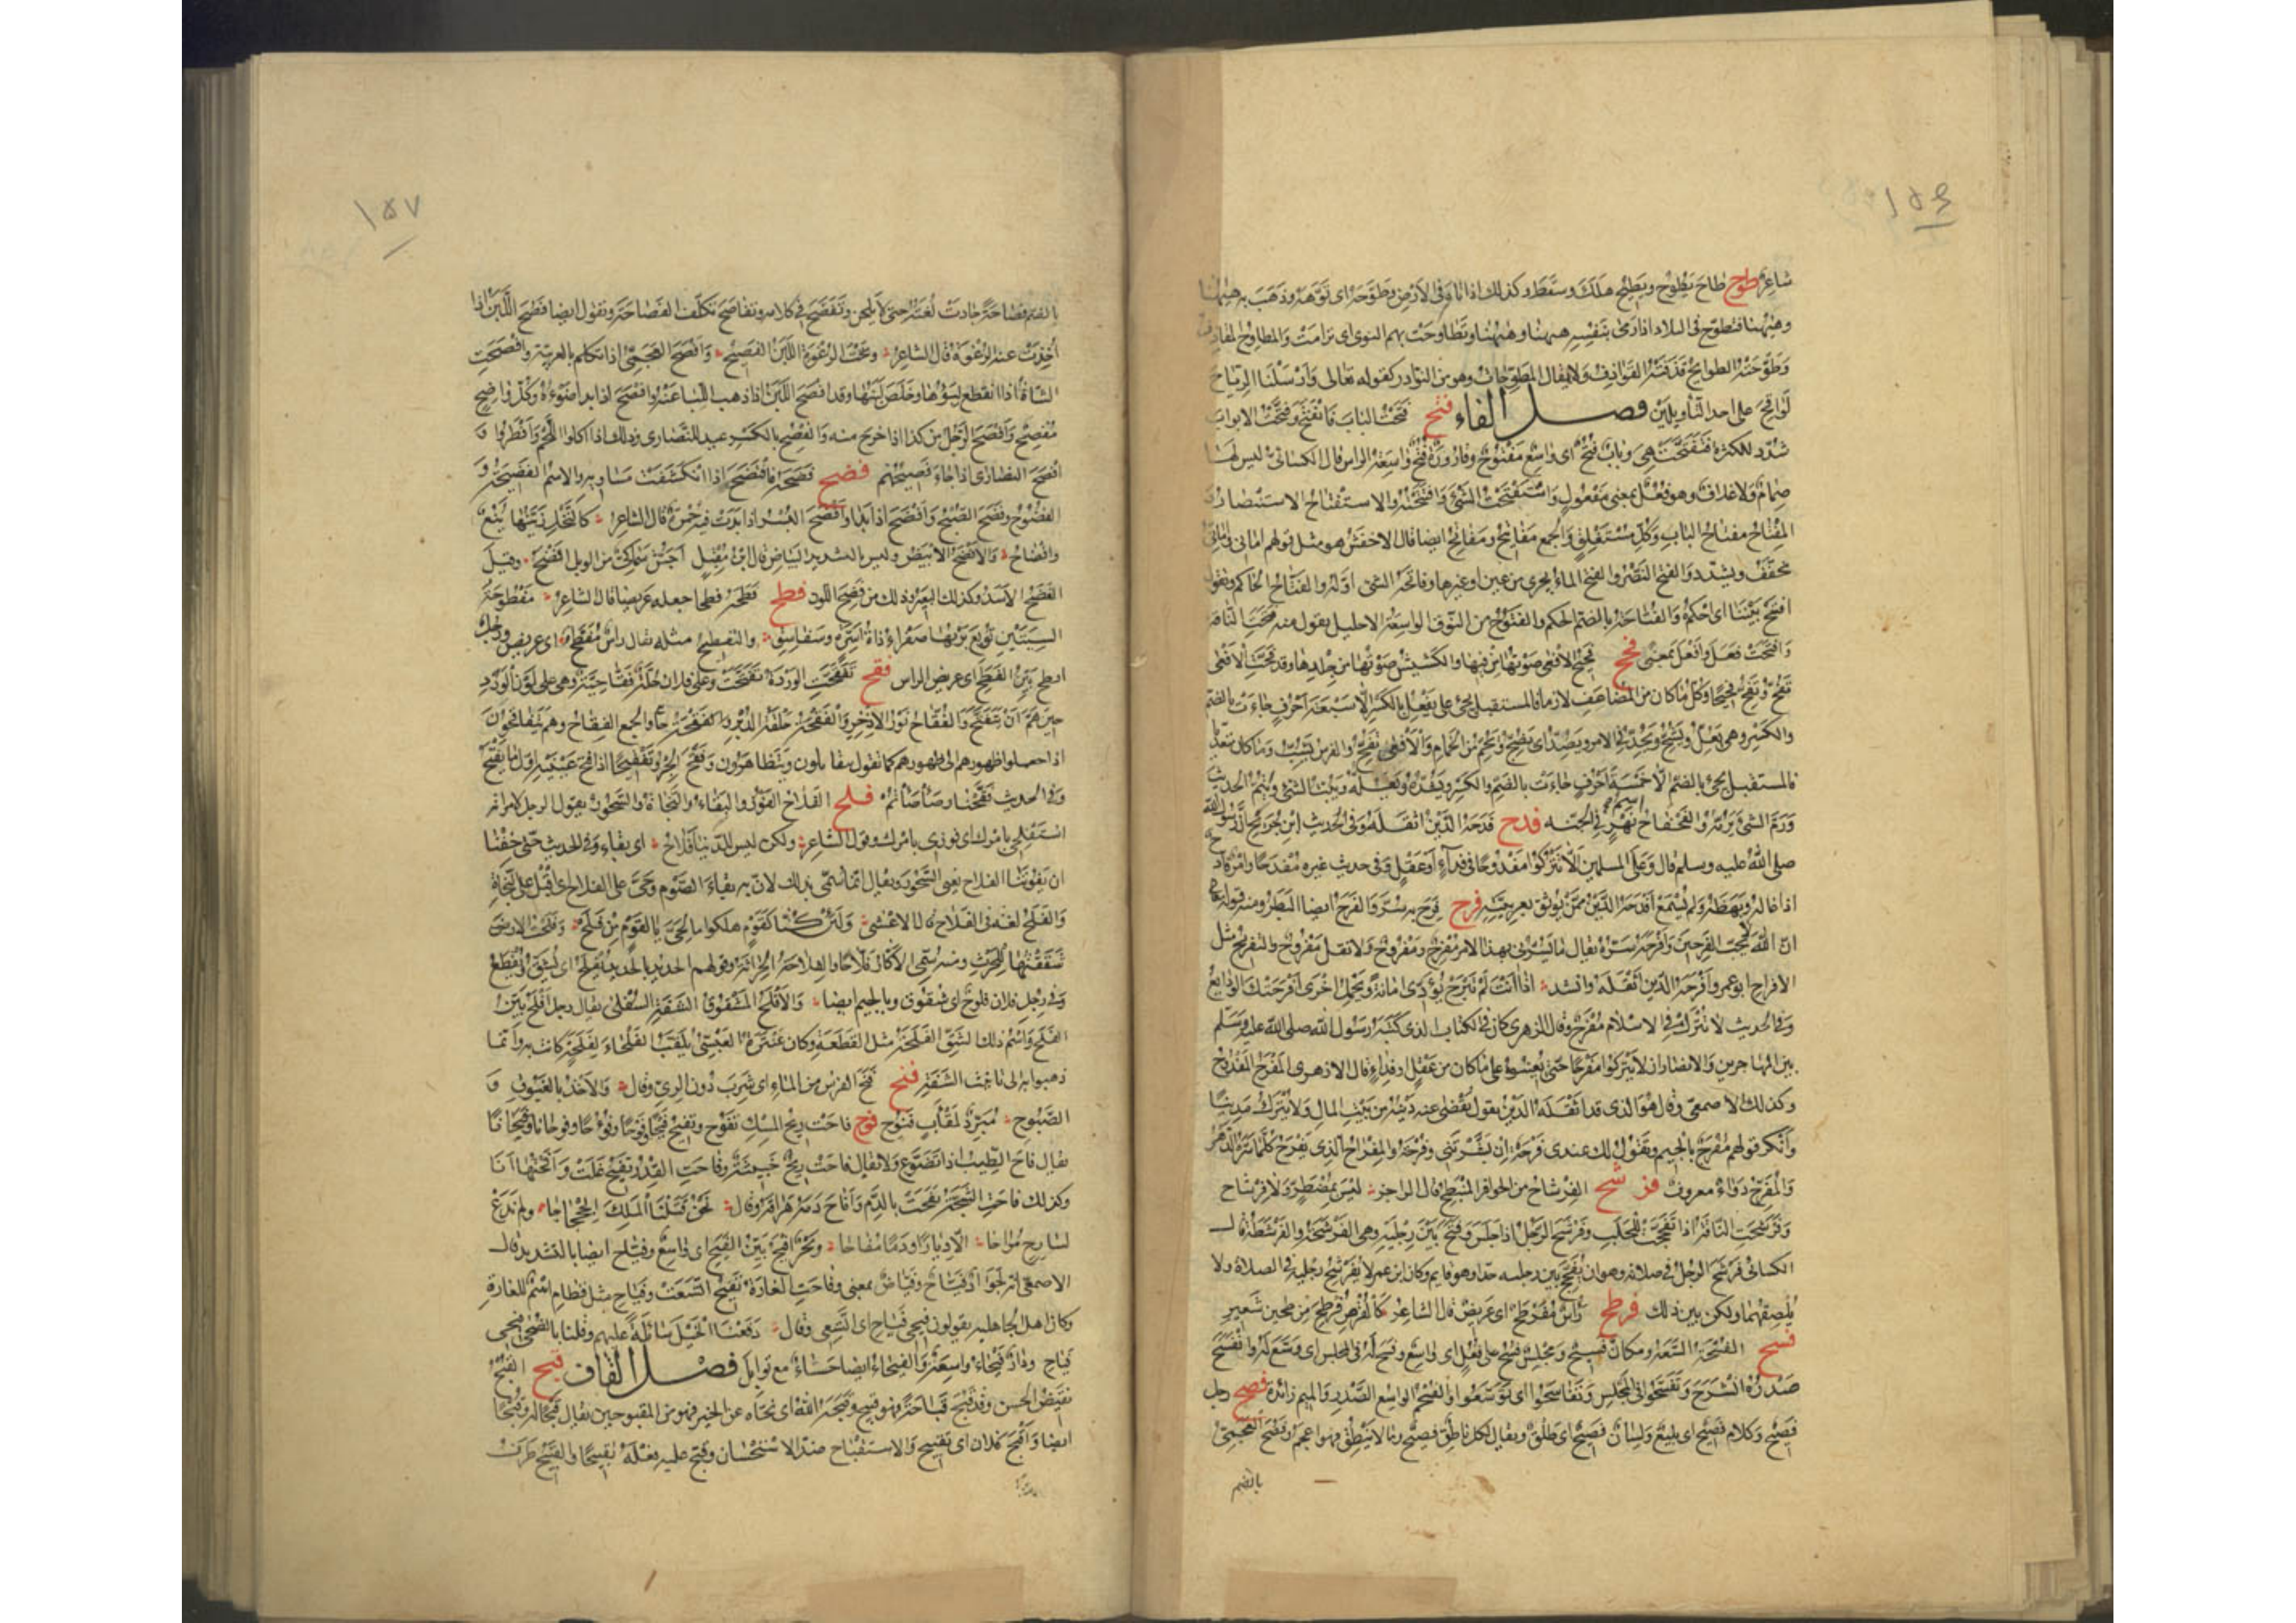 ١٥٦
شاعر طوح طاح يطوح ويطيح هلك وسقط وكذلك اذا تاه فى الارض وطوحه اى توهه وذهب به ههنا
وههنا فتطوح فى البلاد اذا رمى بنفسه ههنا وههنا وتطاوحت بهم النوى اى ترامت والمطاوح المقاذف
وطوحته الطوايح قذفته القواذف ولا يقال المطوحات وهو من النوادر كقوله تعالى وارسلنا الرياح
لواقح على احد التأويلين فصل الفاء فتح فتحت الباب فانفتح وفتحت الابواب
شدد للكثرة فتفتحت هى وباب فتح اى واسع مفتوح وقارورة فتح واسعة الراس قال الكسائى ليس لها
صمام ولا غلاف وهو فعل بمعنى مفعول واستفتحت الشئ وافتتحته والاستفتاح الاستنصار و
المفتاح مفتاح الباب وكل مستغلق والجمع مفاتيح ومفاتح ايضا قال الاخفش هو مثل قولهم امانى وامانى
يخفف ويشدد والفتح النصر والفتح الماء يجرى من عين او غيرها وفاتحة الشئ اوله والفتاح الحاكم وتقول
افتح بيننا اى احكم والفتاحة بالضم الحكم والفتوح من النوق الواسعة الاحليل يقول منه فتحت الناقة
وافتحت فعل وافعل بمعنى فحح فحيح الافعى صوتها من فيها والكشيش صوتها من جلدها وقد فحت الافعى
تفح وتفح فحيحا وكل ما كان من المضاعف لازما فالمستقبل يجئ على يفعل بالكسر الا سبعة احرف جاءت بالضم
والكسر وهى يعل ويشح ويجد فى الامر ويصد اى يضج ويجم من الحمام والافعى تفح والفرس تشب وما كان متعديا
فالمستقبل يجئ بالضم الا خمسة احرف جاءت بالضم والكسر ويشده ويعله ويبت الشئ وينم الحديث
ورم الشئ يرمه والفحفاح اسم نهر فى الجنة فدح فدحه الدين اثقله وفى الحديث ابن جريج ان رسول الله
صلى الله عليه وسلم قال وعلى المسلمين الا يتركوا مفدوحا فى فداء او عقل وفى حديث غيره مفدحا وامر فادح
اذا غاله وبهظه ولم يسمع افدحه الدين ممن يوثق بعربيته فرح فرح به سر والفرح ايضا البطر ومنه قوله تع
ان الله لا يحب الفرحين وافرحه سره يقال ما يسرنى بهذا الامر مفرح ومفروح ولا تقل مفروح والتفريح مثل
الافراح ابو عمرو افرحه الدين اثقله وانشد اذا انت لم تبرح تؤدى امانة وتحمل اخرى افرحتك الودايع
وفى الحديث لا يترك فى الاسلام مفرح وقال الزهرى كان فى الكتاب الذى كتبه رسول الله صلى الله عليه وسلم
بين المهاجرين والانصار ان لا يتركوا مفرحا حتى يعينوه على ما كان من عقل او فداء قال الازهرى المفرح المفدوح
وكذلك الاصمعى وقال هو الذى قد اثقله الدين يقول يقضى عنه دينه من بيت المال ولا يترك مدينا
وانكر قولهم مفرج بالجيم وتقول لك عندى فرحة ان بشرتنى وفرحة والمفراح الذى يفرح كلما سره الدهر
والمفرح دواء معروف فرشح الفرشاح من الحوافر المنبطح قال الراجز ليس بمصطر ولا فرشاح
وفرشحت الناقة اذا تفحجت للحلب وفرشح الرجل اذا جلس وفتح بين رجليه وهى الفرشحة والفرشطة قال
الكسائى فرشح الرجل فى صلاته وهو ان يفحج بين رجليه جدا وهو قايم وكان ابن عمر لا يفرشح رجليه فى الصلاة ولا
يلصقهما ولكن بين ذلك فرطح راس مفرطح اى عريض قال الشاعر كالقرص فرطح من طحين شعير
فسح الفسحة السعة ومكان فسيح ومجلس فسح على فعل اى واسع وفسح له فى المجلس اى وسع له وانفسح
صدره انشرح وتفسحوا فى المجلس وتفاسحوا اى توسعوا والفسحم الواسع الصدر والميم زائدة فصح رجل
فصيح وكلام فصيح اى بليغ ولسان فصيح اى طلق ويقال لكل ناطق فصيح وما لا ينطق فهو اعجم وفصح العجمى
بالضم
١٥٧
بالضم فصاحة جادت لغته حتى لا يلحن وتفصح فى كلامه وتفاصح تكلف الفصاحة وتقول ايضا فصح اللبن اذا
اخذت عنه الرغوة قال الشاعر وتحت الرغوة اللبن الفصيح وافصح العجمى اذا تكلم بالعربية وافصحت
الشاة اذا انقطع لبؤها وخلص لبنها وقد افصح اللبن اذا ذهب اللبا عنه وافصح اذا بدا ضوءه وكل واضح
مفصح وافصح الرجل من كذا اذا خرج منه والفصح بالكسر عيد النصارى وذلك اذا اكلوا اللحم وافطروا و
افصح النصارى اذا جاء فصحهم فضح فضحه فافتضح اذا انكشفت مساويه والاسم الفضيحة و
الفضوح وفضح الصبح وافضح اذا بدا وافضح البسر اذا بدت فيه حمرة قال الشاعر كالنخل زينها ينع
وافضاح والافضح الابيض وليس بالشديد البياض قال ابن مقبل اجش سماكى من الوبل افضح وقيل
الفضح الاسد وكذلك البعير وذلك من فضح اللون فطح فطحه فطحا جعله عريضا قال الشاعر مفطوحة
السيتين توبع بريها صفراء ذات اسرة وسفاسق والتفطيح مثله يقال راس مفطح اى عريض ورجل
افطح بين الفطح اى عريض الراس فقح تفقحت الوردة تفتحت وعلى فلان حلة فقاحية وهى على لون الورد
حين هم ان يتفتح والفقاح نور الاذخر والفقحة حلقة الدبر والجمع الفقاح وهم يتفاقحون
اذا جعلوا ظهورهم الى ظهورهم كما تقول يتقابلون ويتظاهرون وفقح الجرو تفقيحا اذا فتح عينيه اول ما يفتح
وفى الحديث فقحنا وصأصأتم فلح الفلاح الفوز والبقاء والنجاة والسحور يقول الرجل لامراته
استفلحى بامرك اى فوزى بامرك وقول الشاعر ولكن ليس للدنيا فلاح اى بقاء وفى الحديث حتى خفنا
ان يفوتنا الفلاح يعنى السحور ويقال انما سمى بذلك لان به بقاء الصوم وحى على الفلاح اى اقبل على النجاة
والفلح لغة فى الفلاح قال الاعشى ولئن كنا كقوم هلكوا ما لحى يا لقوم من فلح وفلحت الارض
شققتها للحرث ومنه سمى الاكار فلاحا والفلاحة الحراثة وقولهم الحديد بالحديد يفلح اى يشق ويقطع
وفى رجل فلان فلوح اى شقوق وبالجيم ايضا والافلح المشقوق الشفة السفلى يقال رجل افلح بين
الفلح واسم ذلك الشق الفلحة مثل القطعة وكان عنترة العبسى يلقب الفلحاء لفلحة كانت به وانما
ذهبوا به الى تانيث الشفة فنح فنح الفرس من الماء اى شرب دون الرى وقال والاخذ بالغبوق و
الصبوح مبرد لمقأب فنوح فوح فاحت ريح المسك تفوح وتفيح فيحا وفوحا وفؤوحا وفوحانا وفيحانا
يقال فاح الطيب اذا تضوع ولا يقال فاحت ريح خبيثة وفاحت القدر تفيح غلت وافحتها انا
وكذلك فاحت الشجة نفحت بالدم وافاح دمه هراقه وقال نحن قتلنا الملك الجحجاحا ولم ندع
لسارح مراحا الا ديارا او دما مفاحا وبحر افيح بين الفيح اى واسع وفياح ايضا بالتشديد قال
الاصمعى انه لجواد فياح وفياض بمعنى وفاحت الغارة تفيح اتسعت وفياح مثل قطام اسم للغارة
وكان اهل الجاهلية يقولون فيحى فياح اى اتسعى وقال دفعنا الخيل شائلة عليهم وقلنا بالضحى فيحى
فياح ودار فيحاء واسعة والفيحاء ايضا حساء مع توابل فصل القاف قبح القبح
نقيض الحسن وقد قبح قباحة فهو قبيح وقبحه الله اى نحاه عن الخير فهو من المقبوحين يقال قبحا له وقبحا
ايضا واقبح فلان اى تقبيح والاستقباح ضد الاستحسان وقبح عليه فعله تقبيحا والقبيح طرف